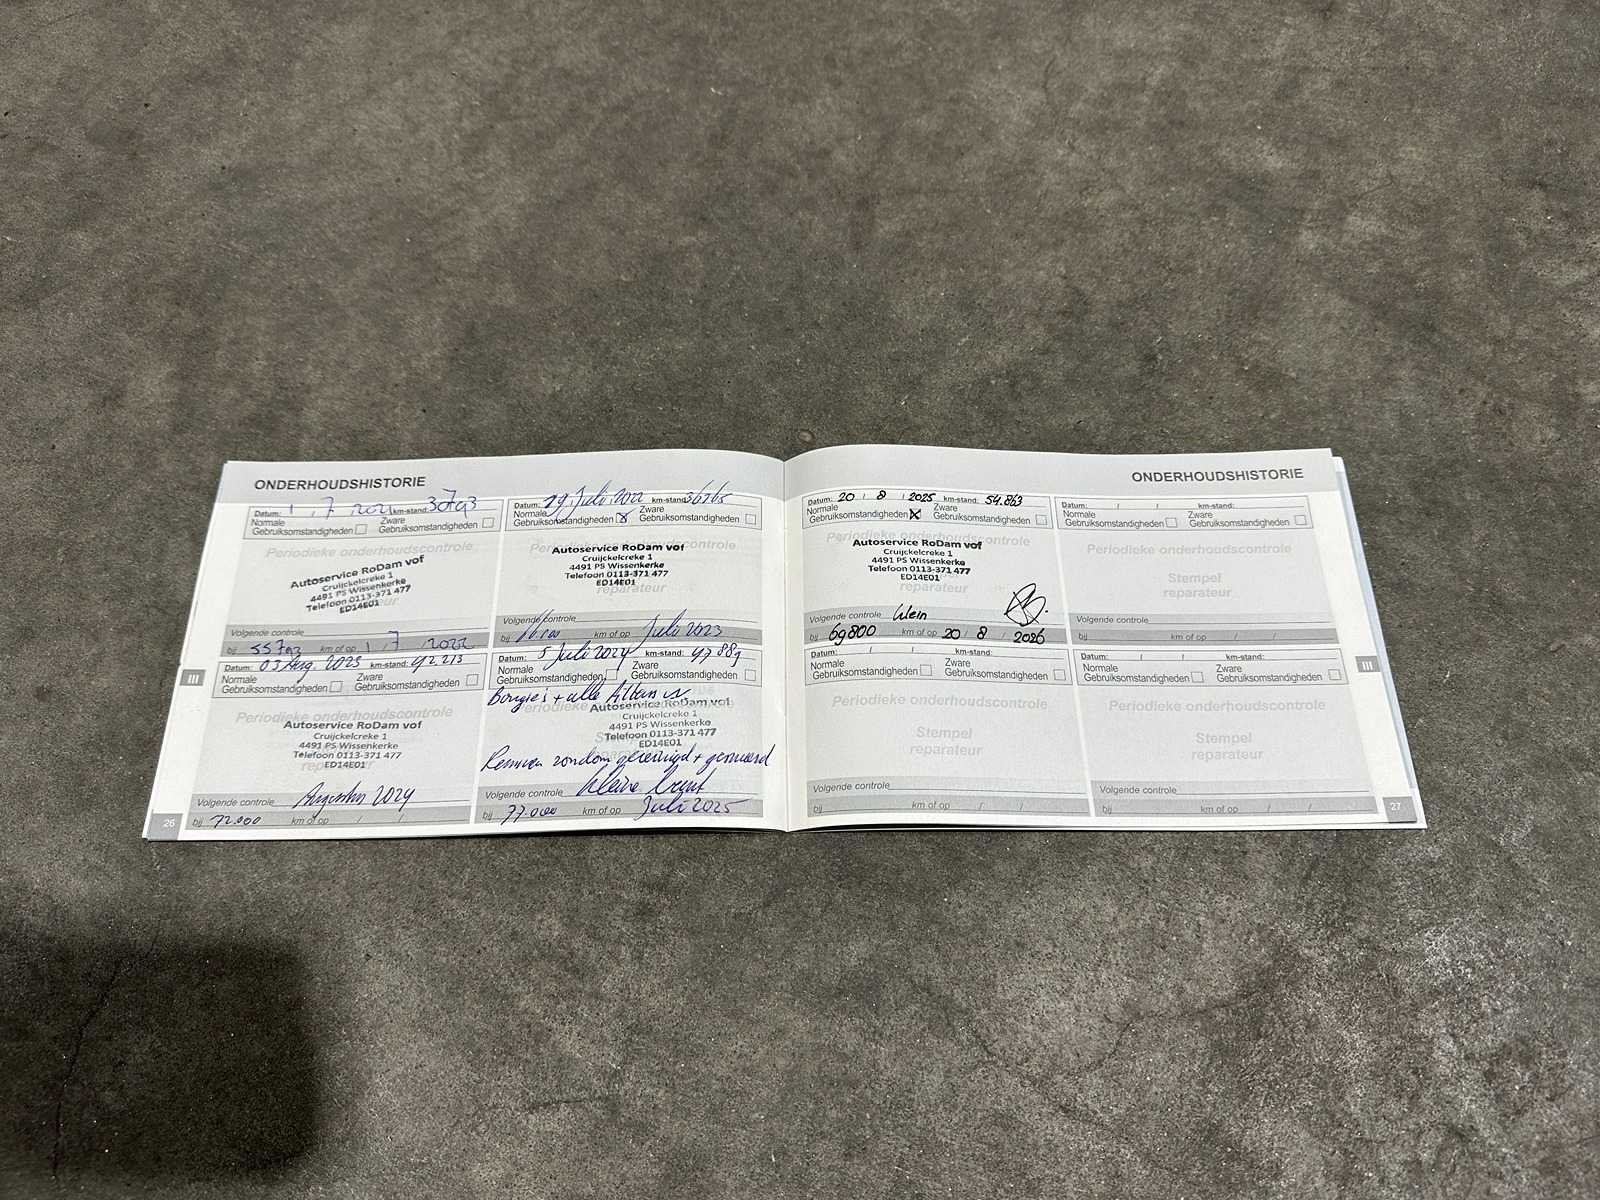 ONDERHOUDSHISTORIE
Datum: 1 / 7 / 2021 km-stand:
Normale Gebruiksomstandigheden
Zware Gebruiksomstandigheden
Periodieke onderhoudscontrole
Autoservice RoDam vof
Cruijckelcreke 1
4491 PS Wissenkerke
Telefoon 0113-371 477
ED14E01
Volgende controle
bij km of op 1 / 7 / 2022
Datum: 29 Juli 2022 km-stand: 36265
Normale Gebruiksomstandigheden X
Zware Gebruiksomstandigheden
Periodieke onderhoudscontrole
Autoservice RoDam vof
Cruijckelcreke 1
4491 PS Wissenkerke
Telefoon 0113-371 477
ED14E01
reparateur
Volgende controle
bij km of op Juli 2023
Datum: 03 Aug. 2023 km-stand: 42213
Normale Gebruiksomstandigheden
Zware Gebruiksomstandigheden
Periodieke onderhoudscontrole
Autoservice RoDam vof
Cruijckelcreke 1
4491 PS Wissenkerke
Telefoon 0113-371 477
ED14E01
Volgende controle Augustus 2024
bij 72.000 km of op / /
5 Juli 2024 km-stand: 47889
Normale Gebruiksomstandigheden
Zware Gebruiksomstandigheden
Bougie's + alle filters
Autoservice RoDam vof
Cruijckelcreke 1
4491 PS Wissenkerke
Telefoon 0113-371 477
ED14E01
Remmen rondom gereinigd + gesmeerd
Volgende controle kleine beurt
bij 77.000 km of op Juli 2025
26
III
ONDERHOUDSHISTORIE
Datum: 20 / 8 / 2025 km-stand: 54.863
Normale Gebruiksomstandigheden X
Zware Gebruiksomstandigheden
Periodieke onderhoudscontrole
Autoservice RoDam vof
Cruijckelcreke 1
4491 PS Wissenkerke
Telefoon 0113-371 477
ED14E01
reparateur
Volgende controle klein
bij 69800 km of op 20 / 8 / 2026
Datum: / / km-stand:
Normale Gebruiksomstandigheden
Zware Gebruiksomstandigheden
Periodieke onderhoudscontrole
Stempel
reparateur
Volgende controle
bij km of op / /
Datum: / / km-stand:
Normale Gebruiksomstandigheden
Zware Gebruiksomstandigheden
Periodieke onderhoudscontrole
Stempel
reparateur
Volgende controle
bij km of op / /
Datum: / / km-stand:
Normale Gebruiksomstandigheden
Zware Gebruiksomstandigheden
Periodieke onderhoudscontrole
Stempel
reparateur
Volgende controle
bij km of op / /
III
27